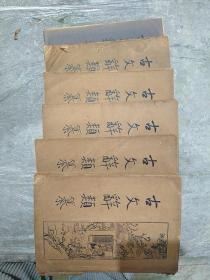 古文辭類纂
古文辭類纂
古文辭類纂
古文辭類纂
古文辭類纂